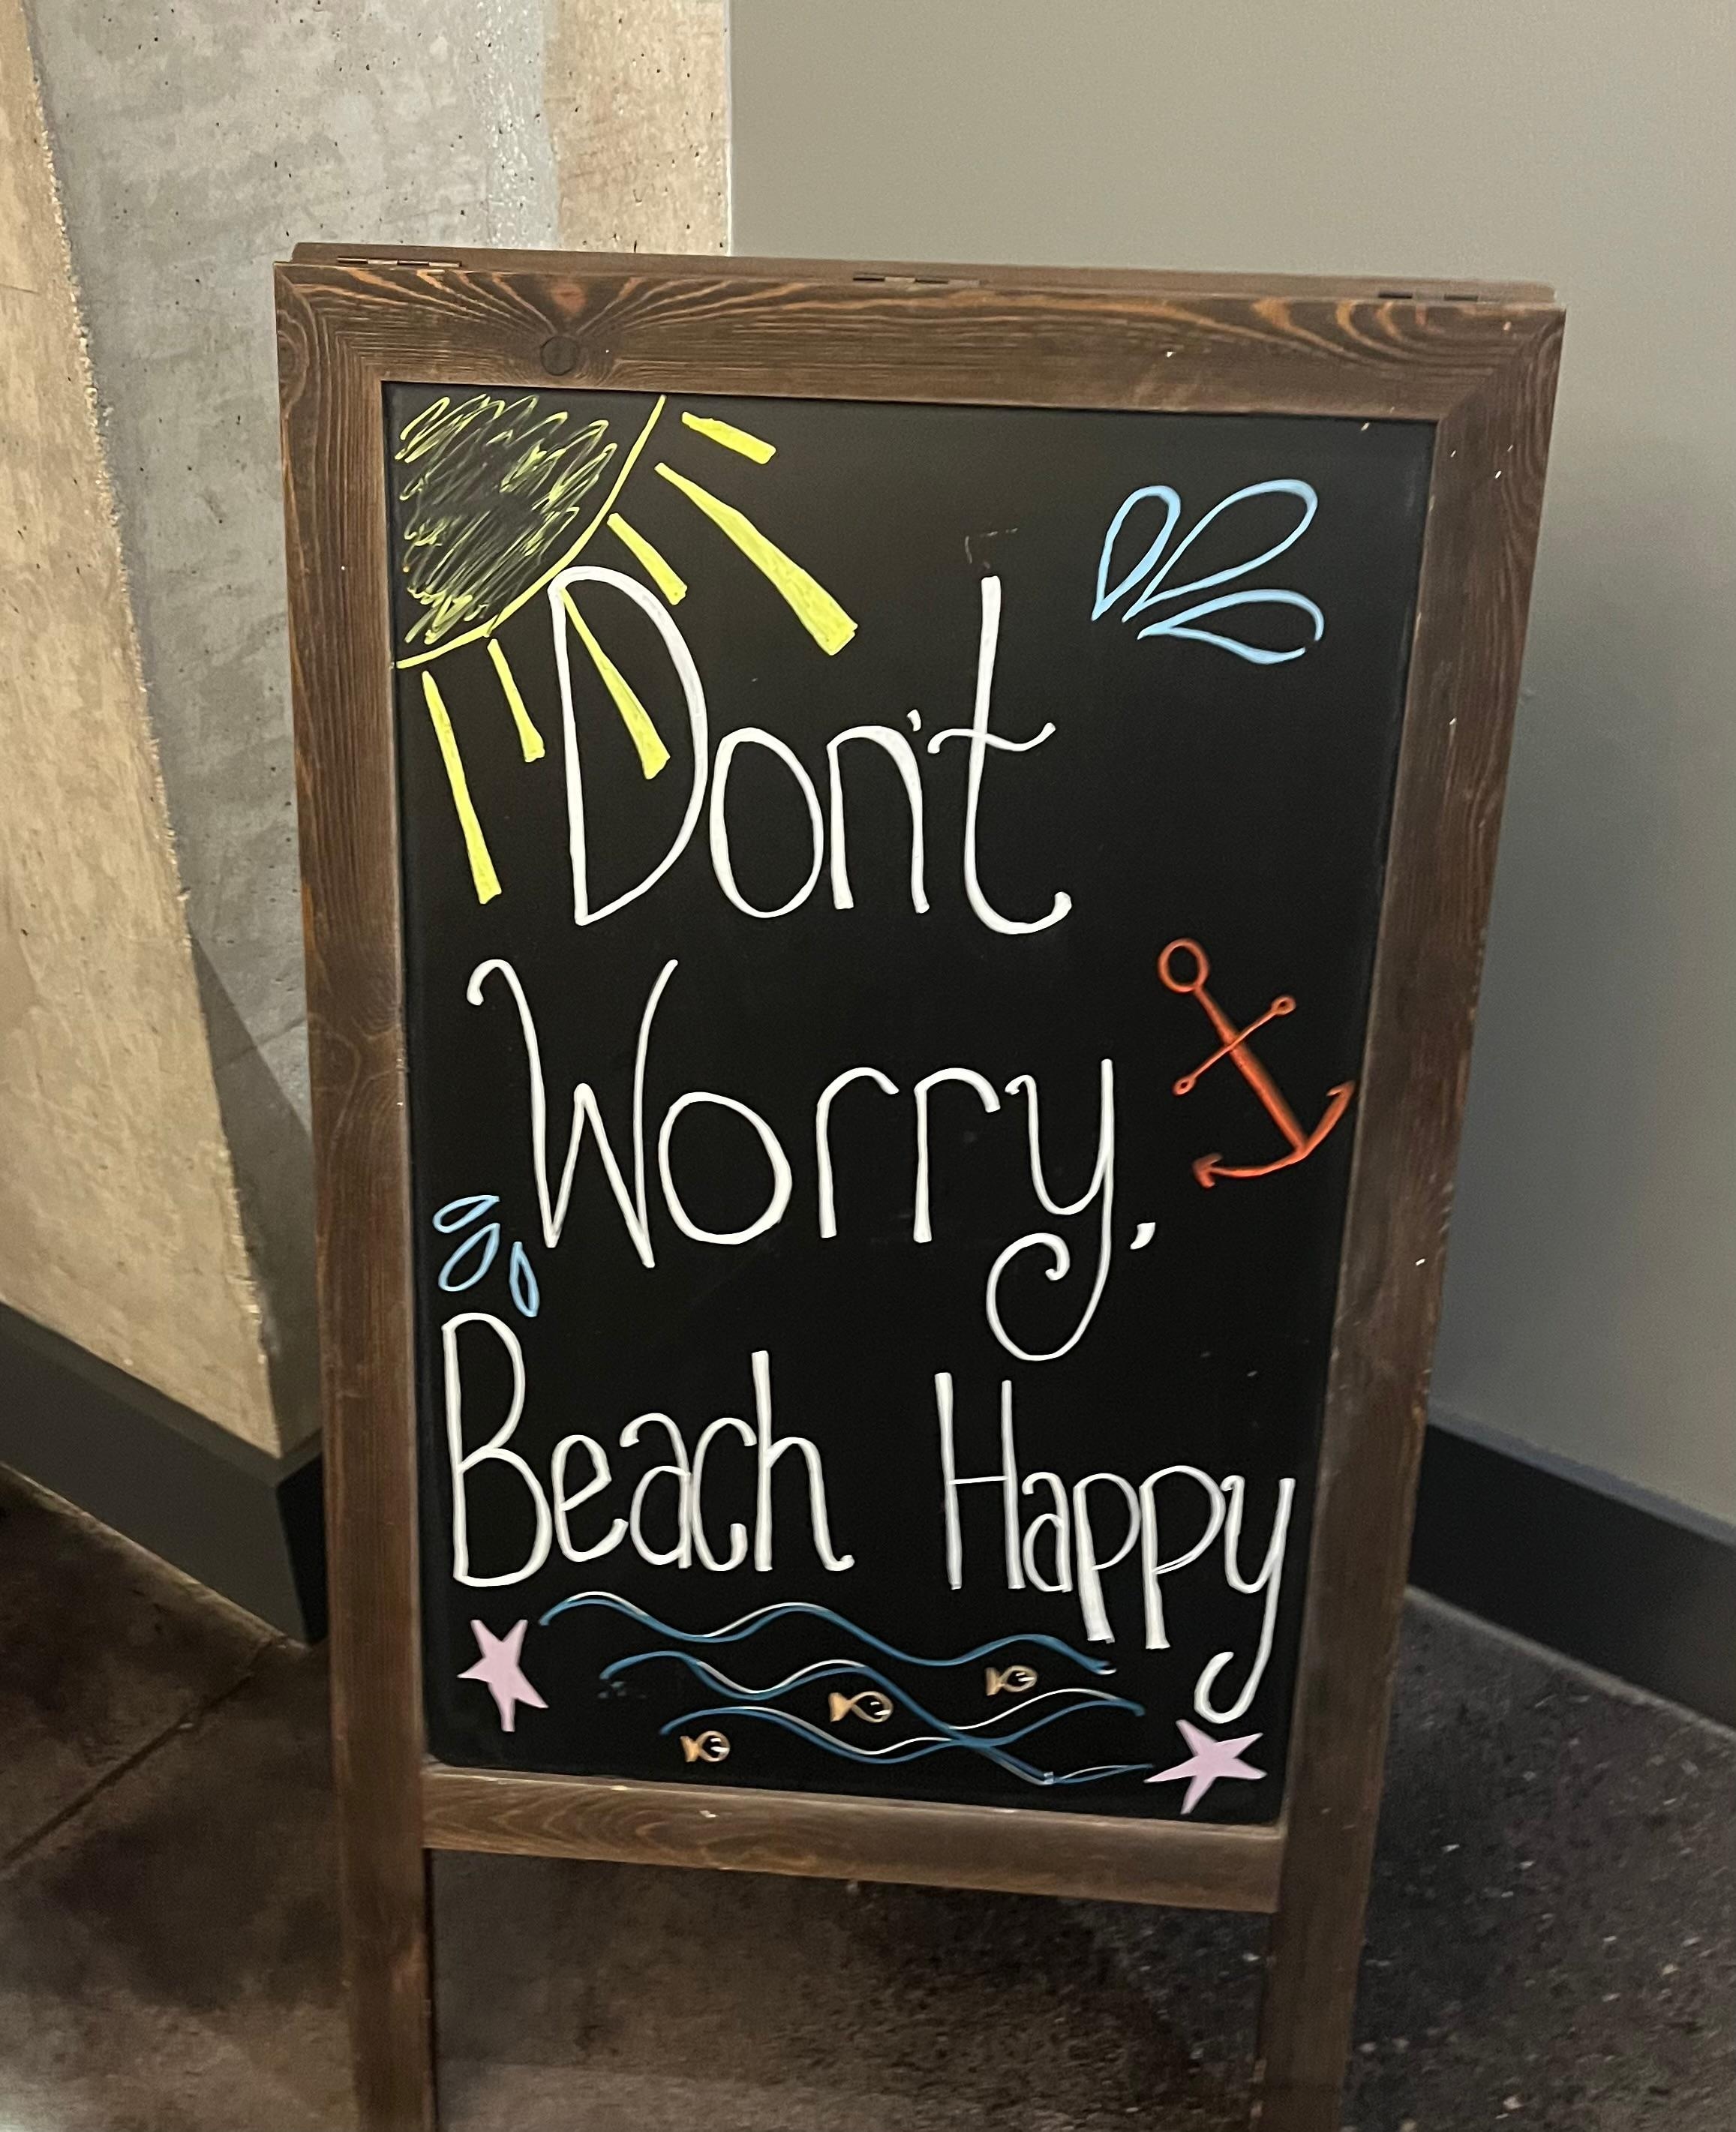 Don't
Worry,
Beach Happy